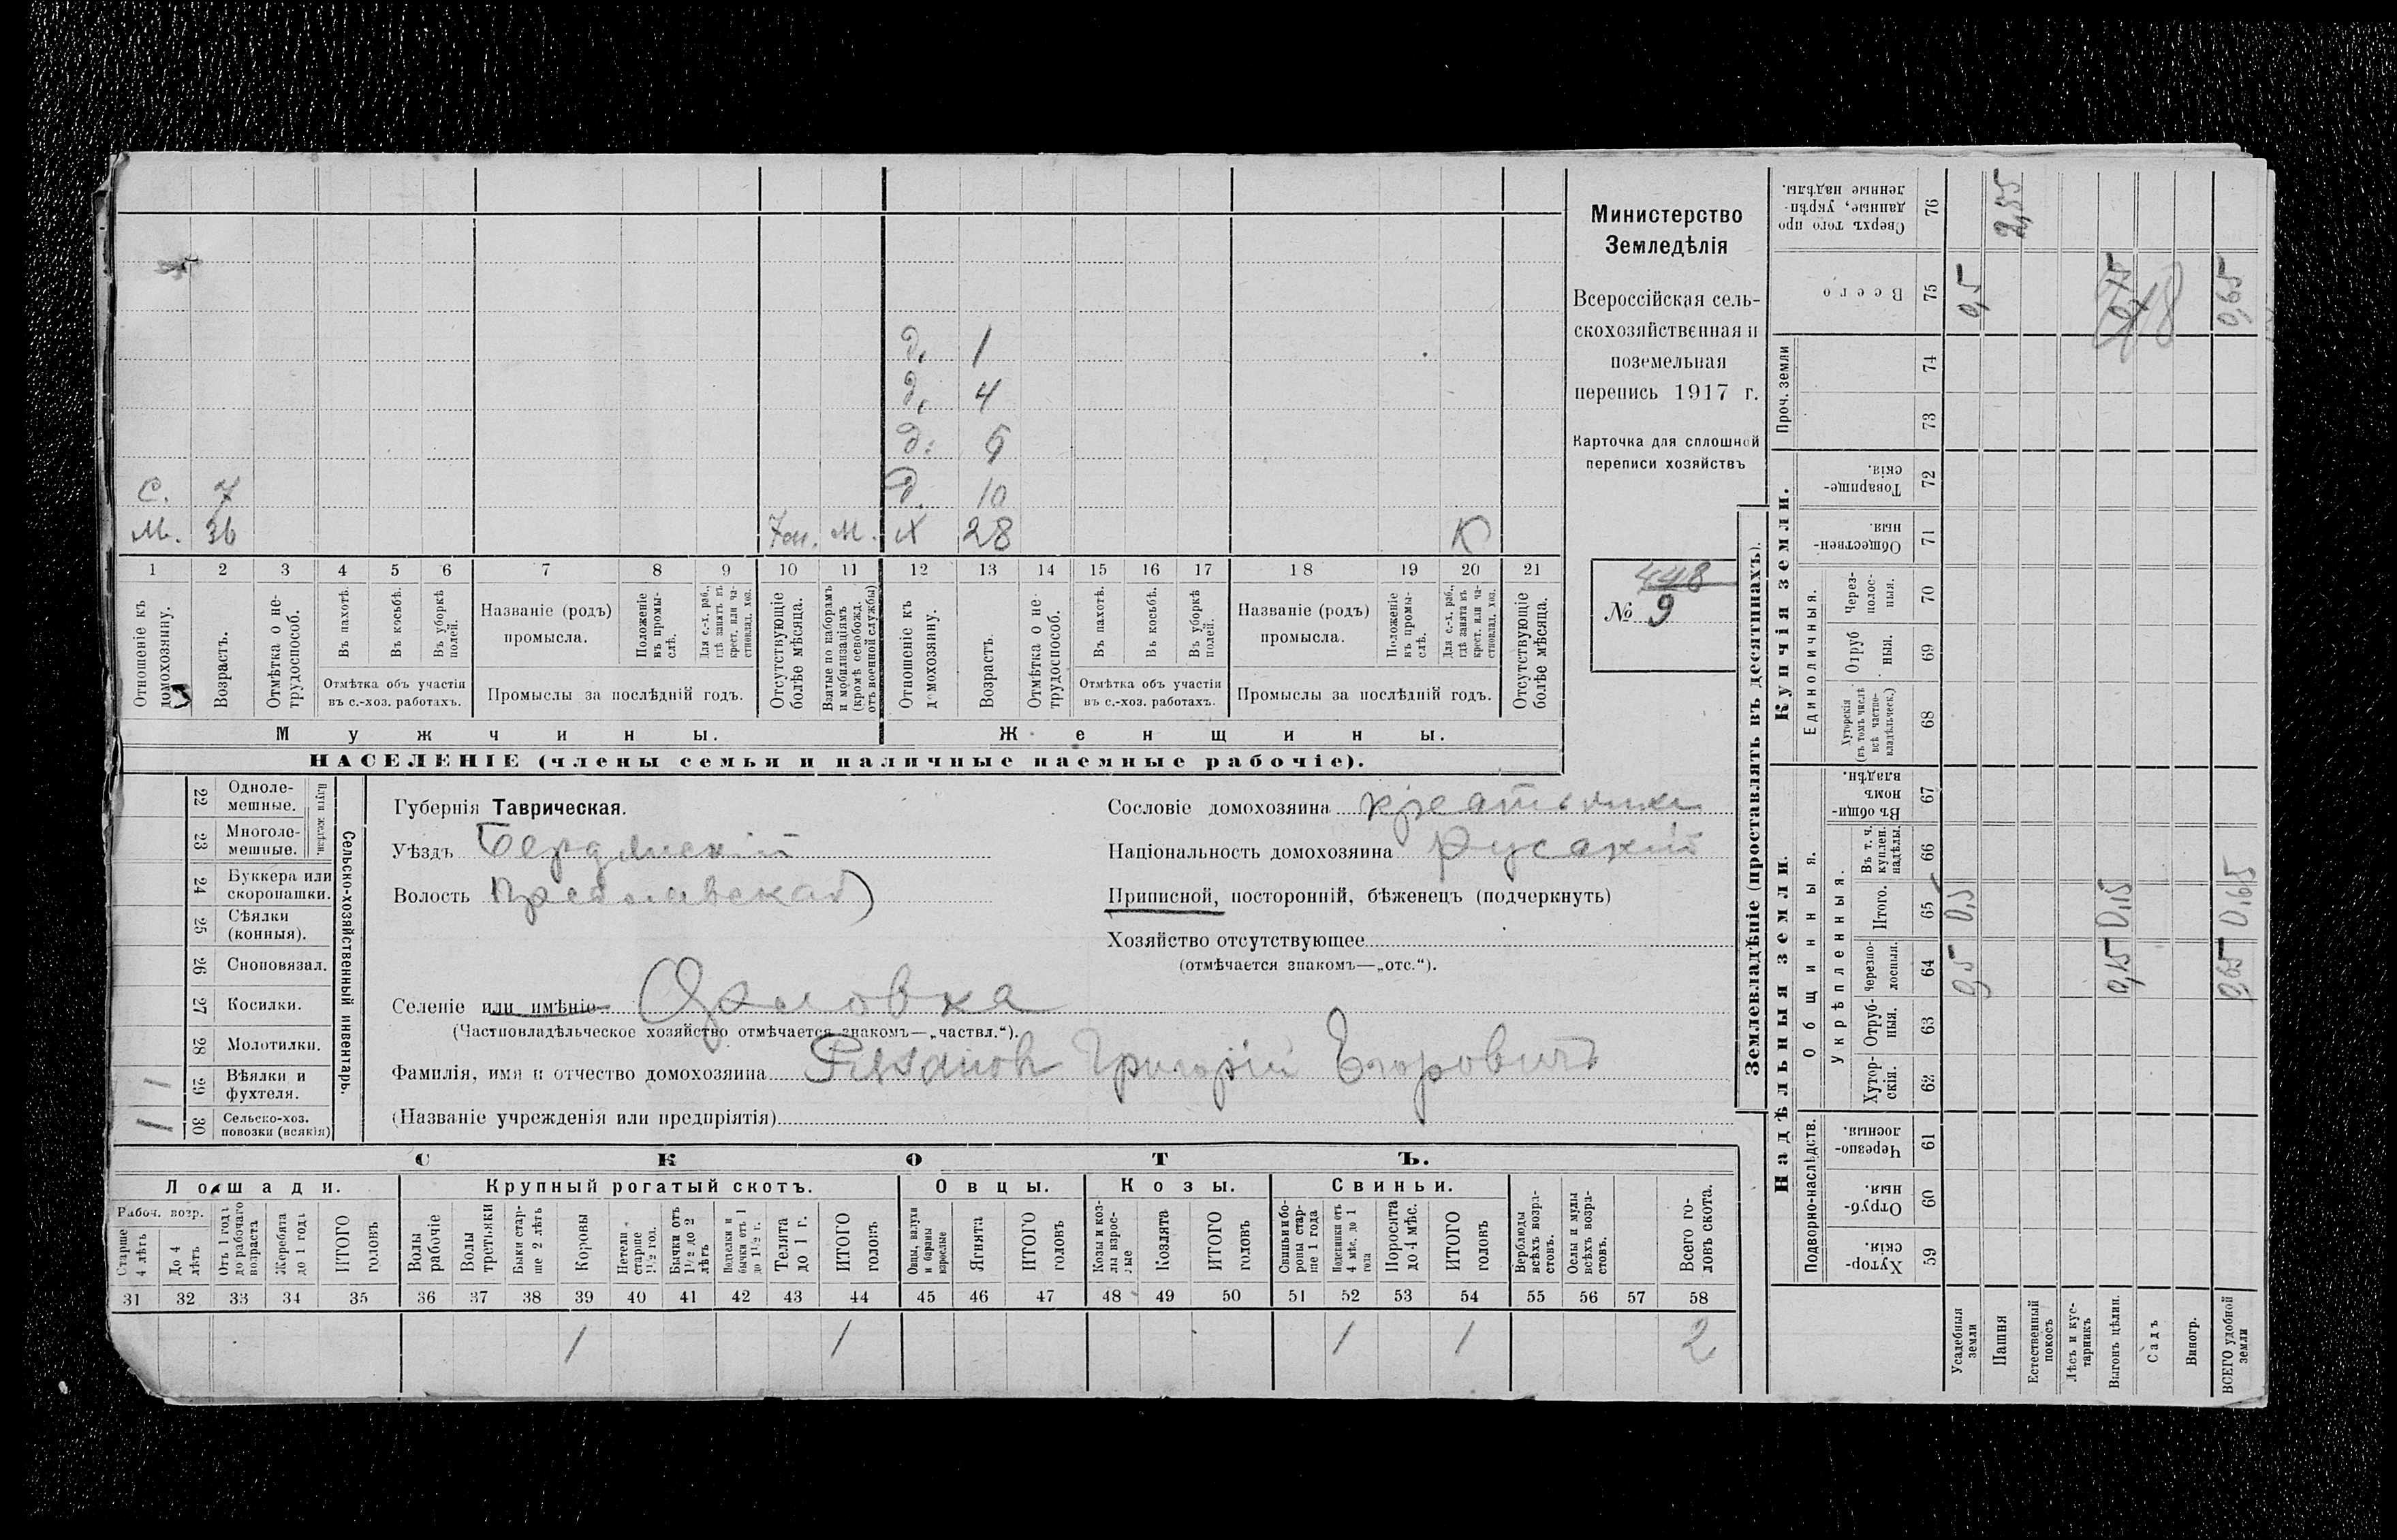 д. 1
д. 4
д. 6
С. 7 д. 10
М. 36 7 м. М. Х 28 К
1 2 3 4 5 6 7 8 9 10 11 12 13 14 15 16 17 18 19 20 21
Отношеніе къ домохозяину.
Возрастъ.
Отмѣтка о не-трудоспособ.
Въ пахотѣ.
Въ косьбѣ.
Въ уборкѣ полей.
Отмѣтка объ участіи
въ с.-хоз. работахъ.
Названіе (родъ)
промысла.
Положеніе въ промы-слѣ.
Для с.-х. раб., гдѣ занятъ въ крест. или ча-стновлад. хоз.
Промыслы за послѣдній годъ.
Отсутствующіе болѣе мѣсяца.
Взятые по наборамъ и мобилизаціямъ (кромѣ освобожд. отъ военной службы)
Отношеніе къ домохозяину.
Возрастъ.
Отмѣтка о не-трудоспособ.
Въ пахотѣ.
Въ косьбѣ.
Въ уборкѣ полей.
Отмѣтка объ участіи
въ с.-хоз. работахъ.
Названіе (родъ)
промысла.
Положеніе въ промы-слѣ.
Для с.-х. раб., гдѣ занята въ крест. или ча-стновлад. хоз.
Промыслы за послѣдній годъ.
Отсутствующіе болѣе мѣсяца.
Мужчины. Женщины.
НАСЕЛЕНІЕ (члены семьи и наличные наемные рабочіе).
Министерство
Земледѣлія
Всероссійская сель-
скохозяйственная и
поземельная
перепись 1917 г.
Карточка для сплошной
переписи хозяйствъ
448
№ 9
Сельско-хозяйственный инвентарь.
Плуги желѣзн.
22 Одноле-мешные.
23 Многоле-мешные.
24 Буккера или скоропашки.
25 Сѣялки (конныя).
26 Сноповязал.
27 Косилки.
28 Молотилки.
29 Вѣялки и фухтеля. 1
30 Сельско-хоз. повозки (всякія) 1
Губернія Таврическая.
Уѣздъ Бердянскій
Волость
Селеніе или имѣніе
(Частновладѣльческое хозяйство отмѣчается знакомъ—„частвл.“).
Фамилія, имя и отчество домохозяина Григорій Егоровичъ
(Названіе учрежденія или предпріятія)
Сословіе домохозяина
Національность домохозяина Русскій
Приписной, посторонній, бѣженецъ (подчеркнуть)
Хозяйство отсутствующее
(отмѣчается знакомъ—„отс.“).
СКОТЪ.
Лошади. Крупный рогатый скотъ. Овцы. Козы. Свиньи.
Рабоч. возр.
Старше 4 лѣтъ
До 4 лѣтъ
Отъ 1 года до рабочаго возраста
Жеребята до 1 года
ИТОГО головъ
Волы рабочіе
Волы третьяки
Быки стар-ше 2 лѣтъ
Коровы
Нетели старше 1½ год.
Бычки отъ 1½ до 2 лѣтъ
Подтелки и бычки отъ 1 до 1½ г.
Телята до 1 г.
ИТОГО головъ
Овцы, валухи и бараны взрослые
Ягнята
ИТОГО головъ
Козы и коз-лы взрос-лые
Козлята
ИТОГО головъ
Свиньи и бо-ровы стар-ше 1 года
Подсвинки отъ 4 мѣс. до 1 года
Поросята до 4 мѣс.
ИТОГО головъ
Верблюды всѣхъ возра-стовъ.
Ослы и мулы всѣхъ возра-стовъ.
Всего го-ловъ скота.
31 32 33 34 35 36 37 38 39 40 41 42 43 44 45 46 47 48 49 50 51 52 53 54 55 56 57 58
1 1 1 1 2
Землевладѣніе (проставлять въ десятинахъ).
Надѣльныя земли. Купчія земли. Проч. земли
Подворно-наслѣдств. Общинныя. Единоличныя.
Укрѣпленныя.
Хутор-скія. 59
Отруб-ныя. 60
Черезпо-лосныя. 61
Хутор-скія. 62
Отруб-ныя. 63
Черезпо-лосныя. 64
Итого. 65
Въ т. ч. куплен. надѣлы. 66
Въ общин-номъ владѣн. 67
Хуторскія (въ томъ числѣ всѣ частно-владѣльческ.) 68
Отруб ныя. 69
Через-полос-ныя. 70
Обществен-ныя. 71
Товарище-скія. 72
73
74
Всего 75
Сверхъ того про данные, укрѣп-ленные надѣлы. 76
Усадебныя земли 0,5 0,5 0,5
Пашня 2,55
Естественный покосъ
Лѣсъ и кус-тарникъ
Выгонъ цѣлин. 0,15 0,15
Садъ
Виногр.
ВСЕГО удобной земли 0,65 0,65 0,65